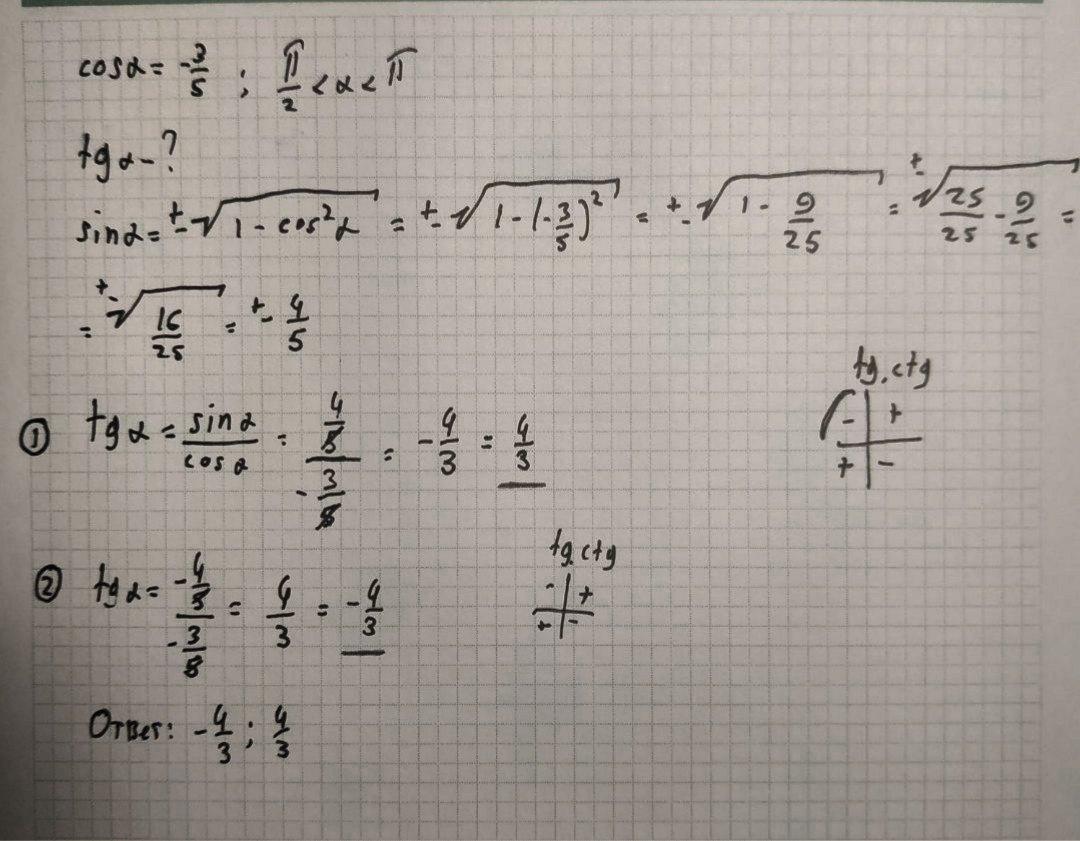 cosα = -3/5 ; π/2 < α < π
tgα - ?
sinα = ±√(1 - cos²α) = ±√(1 - (-3/5)²) = ±√(1 - 9/25) = ±√(25/25 - 9/25) =
= ±√(16/25) = ±4/5
tg, ctg
- +
+ -
① tgα = sinα/cosα = (4/5)/(-3/5) = -4/3 = 4/3
tg, ctg
- +
+ -
② tgα = (-4/5)/(-3/5) = 4/3 = -4/3
Ответ: -4/3 ; 4/3